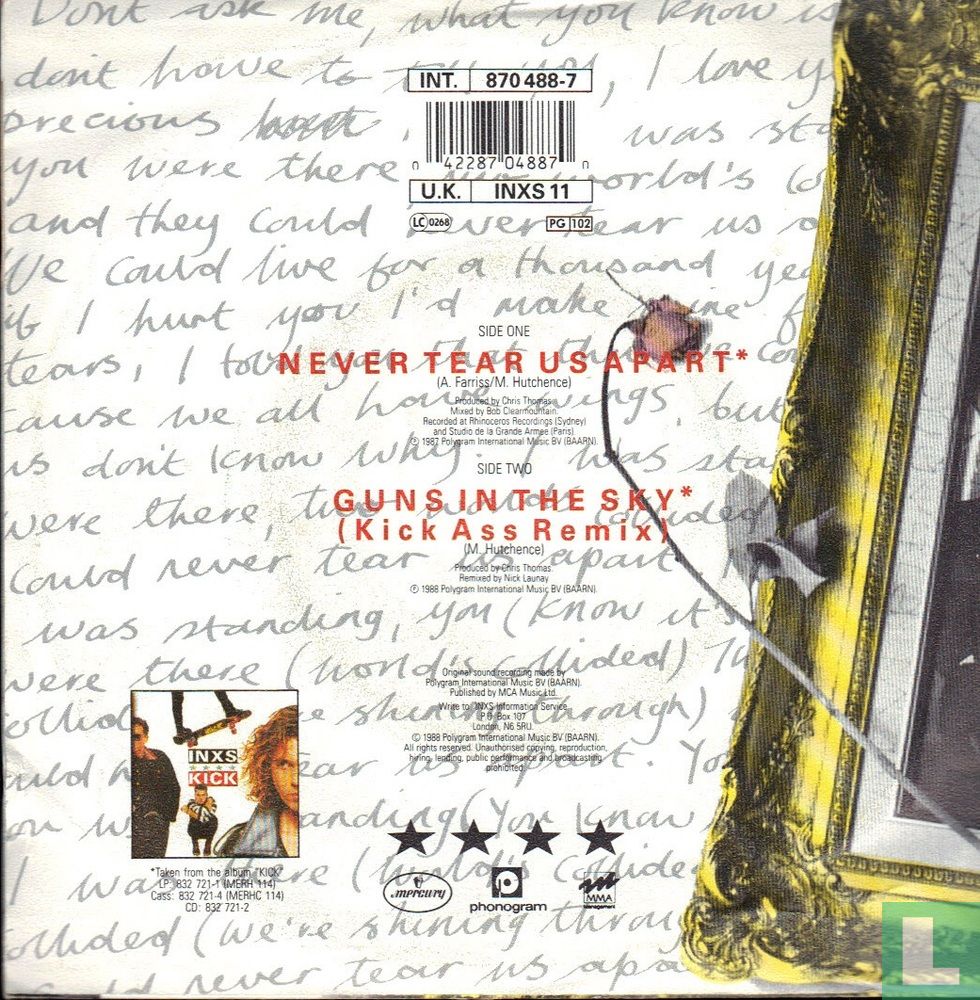 Dont ask me, what you know is
dont have to tell you, I love y
precious
was sta
you were there world's co
and they could never tear us a
We could live for a thousand yea
if I hurt you I'd make wine f
tears, I
cause we all have wings, but
us don't know why. I was sta
were there, two worlds collided
could never tear us apart
was standing, you (know it's
were there (world's collided)
shining through)
tear us apart. Yo
standing (You know
I was there (world's collide
ollided (we're shining throu
could never tear us apa
INT. 870 488-7
0 42287 04887 0
U.K. INXS 11
LC 0268
PG 102
SIDE ONE
NEVER TEAR US APART*
(A. Farriss/M. Hutchence)
Produced by Chris Thomas.
Mixed by Bob Clearmountain.
Recorded at Rhinoceros Recordings (Sydney)
and Studio de la Grande Armee (Paris)
℗ 1987 Polygram International Music BV (BAARN).
SIDE TWO
GUNS IN THE SKY*
(Kick Ass Remix)
(M. Hutchence)
Produced by Chris Thomas.
Remixed by Nick Launay
℗ 1988 Polygram International Music BV (BAARN).
Original sound recording made by
Polygram International Music BV (BAARN).
Published by MCA Music Ltd.
Write to: INXS Information Service,
P.O. Box 107
London, N6 5RU.
© 1988 Polygram International Music BV (BAARN).
All rights reserved. Unauthorised copying, reproduction,
hiring, lending, public performance and broadcasting
prohibited.
INXS
KICK
*Taken from the album "KICK"
LP: 832 721-1 (MERH 114)
Cass: 832 721-4 (MERHC 114)
CD: 832 721-2
mercury
phonogram
MMA
Management
L